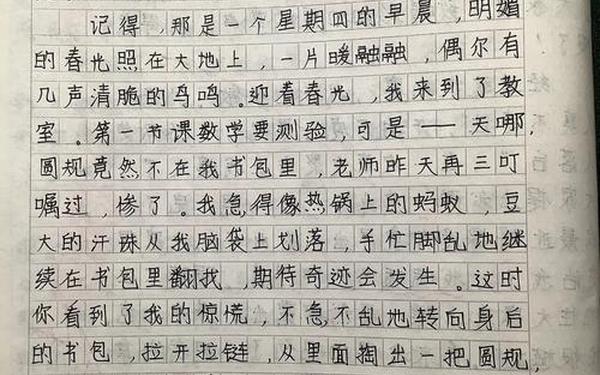 记得，那是一个星期四的早晨，明媚
的春光照在大地上，一片暖融融，偶尔有
几声清脆的鸟鸣。迎着春光，我来到了教
室。第一节课数学要测验，可是——天哪，
圆规竟然不在我书包里，老师昨天再三叮
嘱过，惨了。我急得像热锅上的蚂蚁，豆
大的汗珠从我脑袋上划落，手忙脚乱地继
续在书包里翻找，期待奇迹会发生。这时
你看到了我的惊慌，不急不乱地转向身后
的书包，拉开拉链，从里面掏出一把圆规，